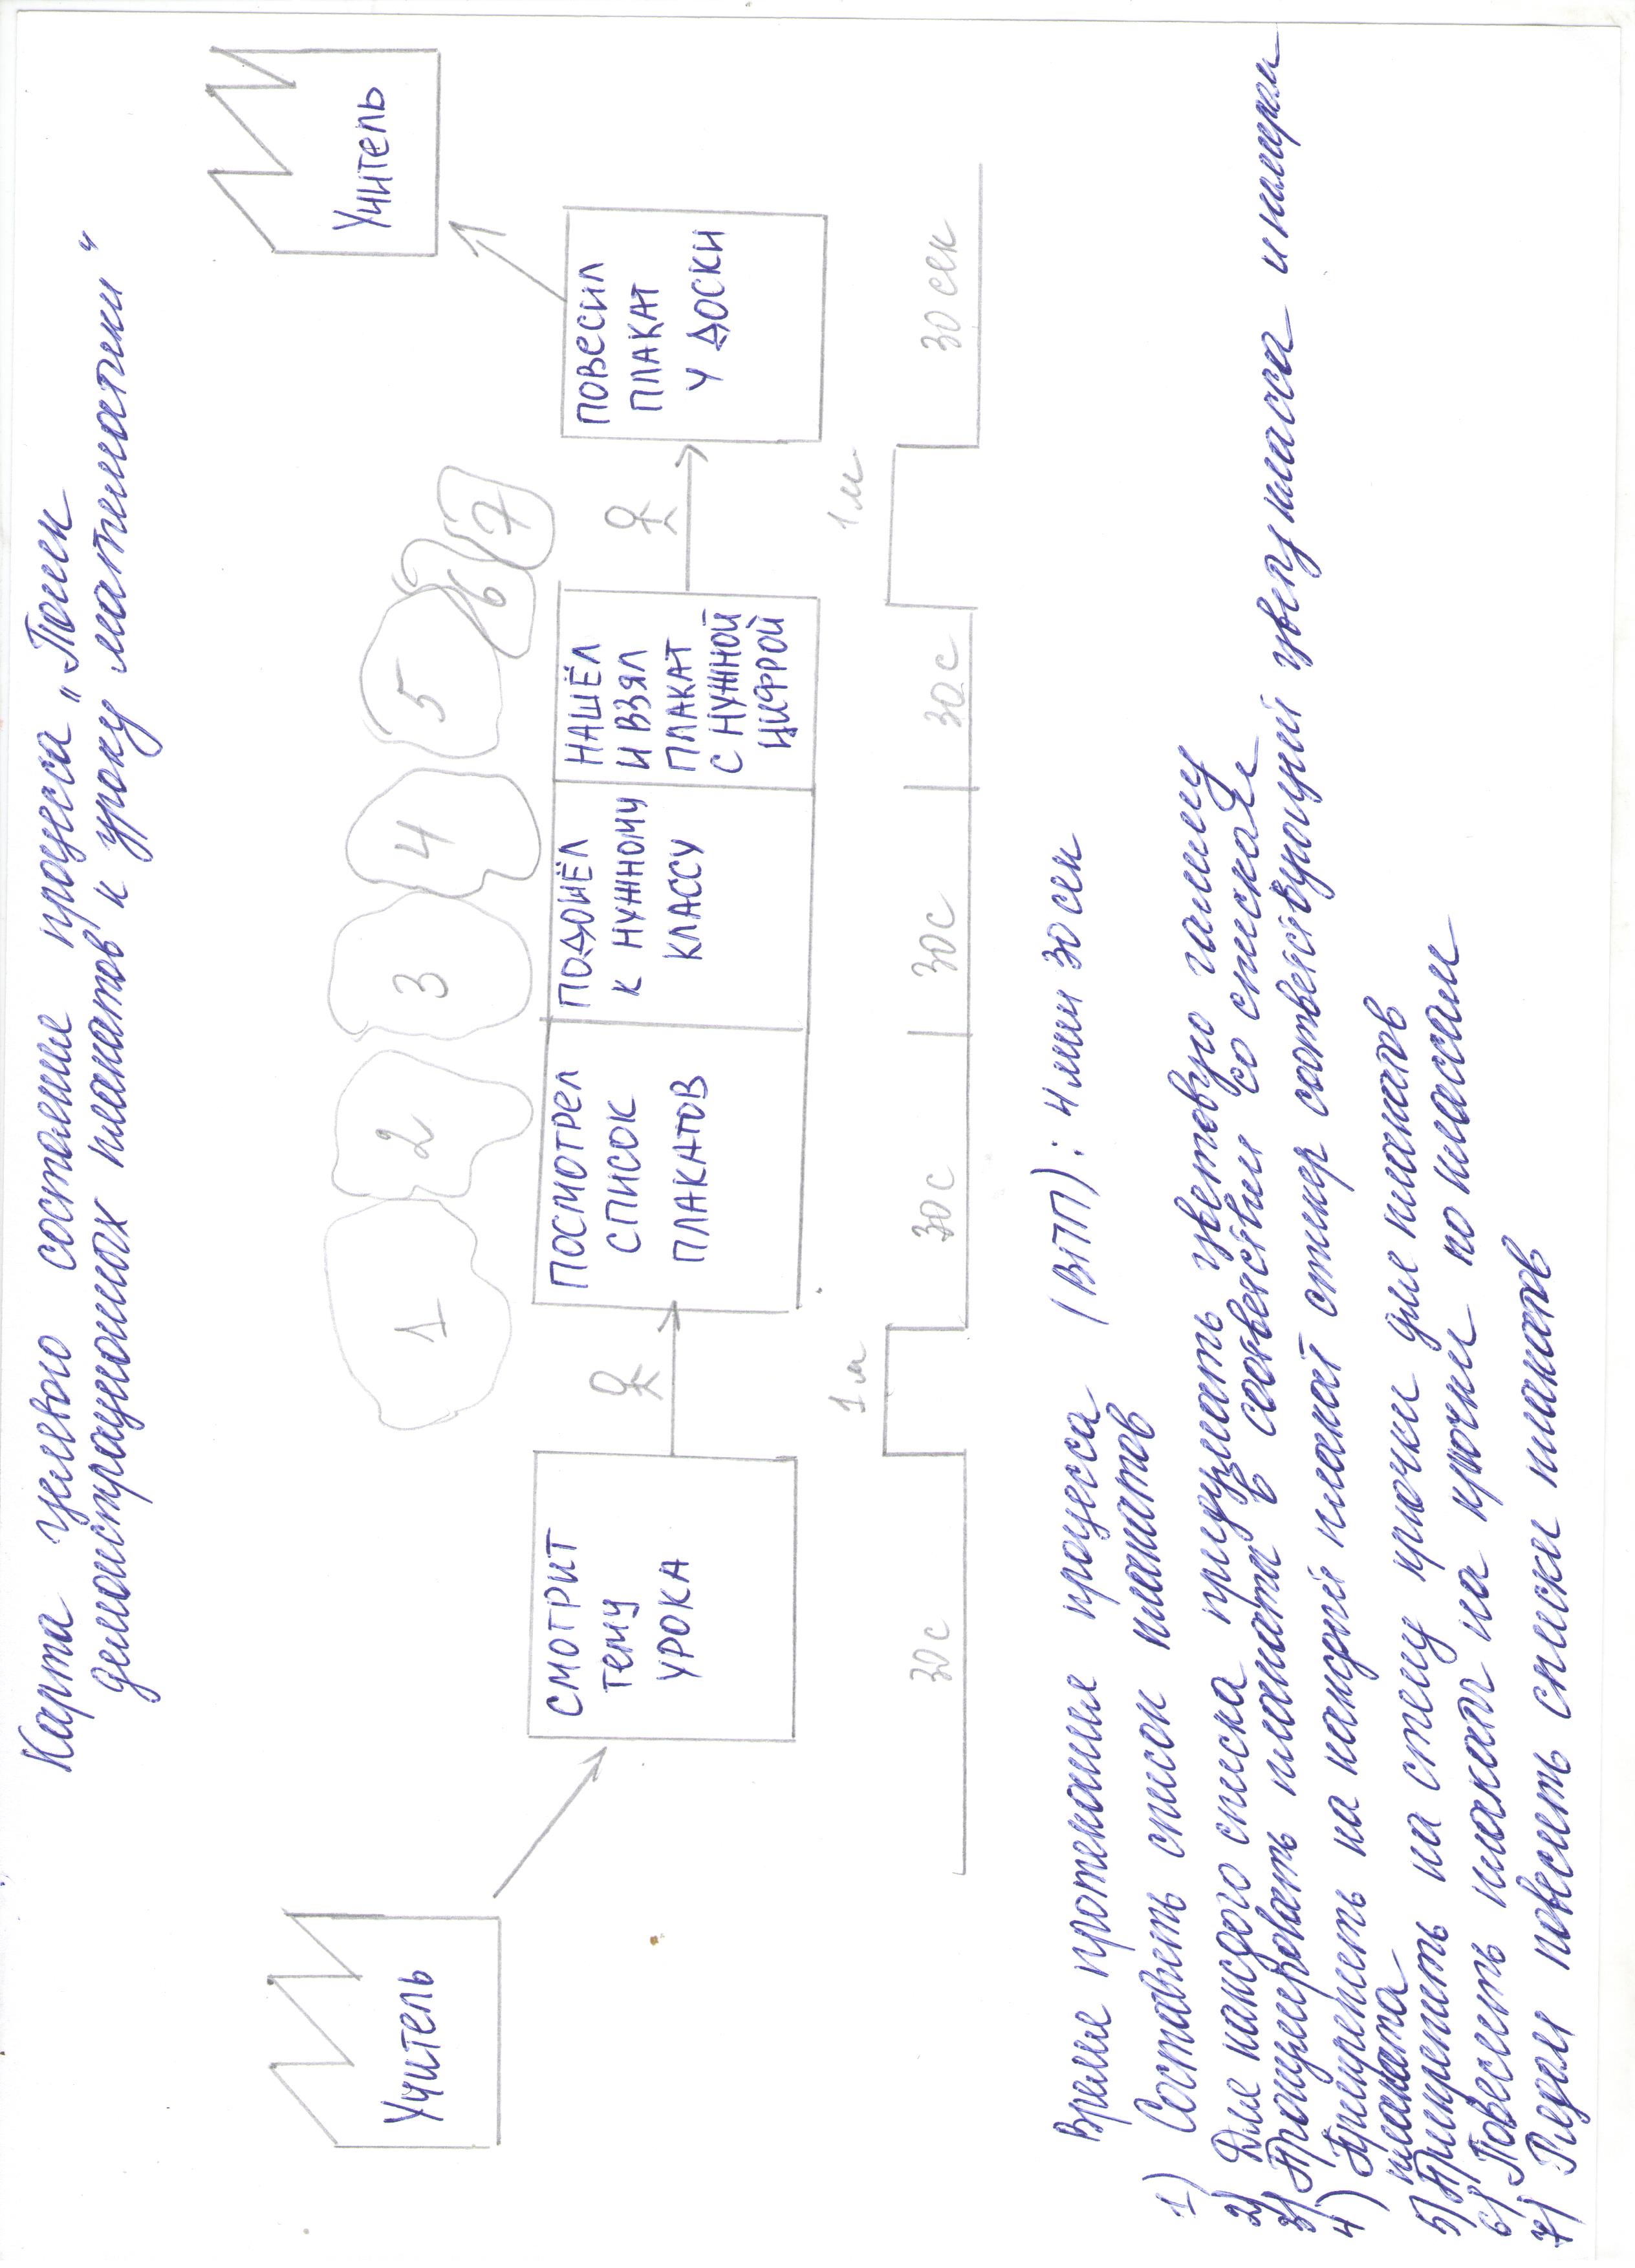 Карта целевого состояние процесса "Поиск
демонстрационных плакатов к уроку математики"
Учитель
Учитель
СМОТРИТ
ТЕМУ
УРОКА
ПОСМОТРЕЛ
СПИСОК
ПЛАКАТОВ
ПОДОШЁЛ
К НУЖНОМУ
КЛАССУ
НАШЁЛ
И ВЗЯЛ
ПЛАКАТ
С НУЖНОЙ
ЦИФРОЙ
ПОВЕСИЛ
ПЛАКАТ
У ДОСКИ
1
2
3
4
5
6
7
30 с
1 м
30 с
30 с
30 с
1 м
30 сек
Время протекания процесса (ВПП): 4 мин 30 сек
1) Составить список плакатов
2) Для каждого списка придумать цветовую гамму
3) Пронумеровать плакаты в соответствии со списками
4) Прикрепить на каждый плакат стикер соответствующий цвету класса и номера
плаката
5) Прикрепить на стену крючки для плакатов
6) Повесить плакат на крючки по классам
7) Рядом повесить списки плакатов